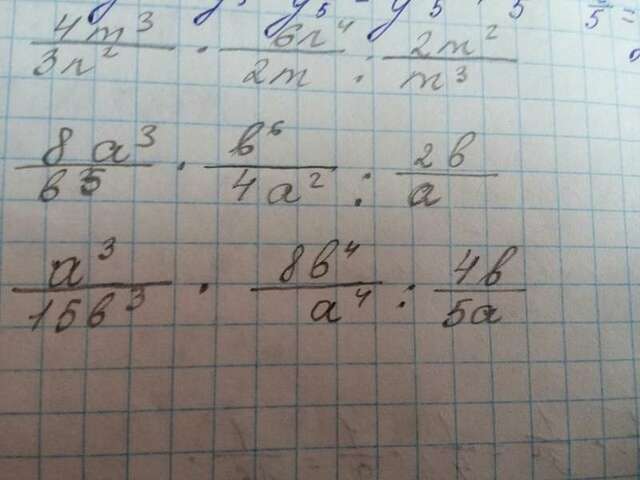 4m³/3n² · 6n⁴/2m : 2m²/m³
8a³/b⁵ · b⁶/4a² : 2b/a
a³/15b³ · 8b⁴/a⁴ : 4b/5a